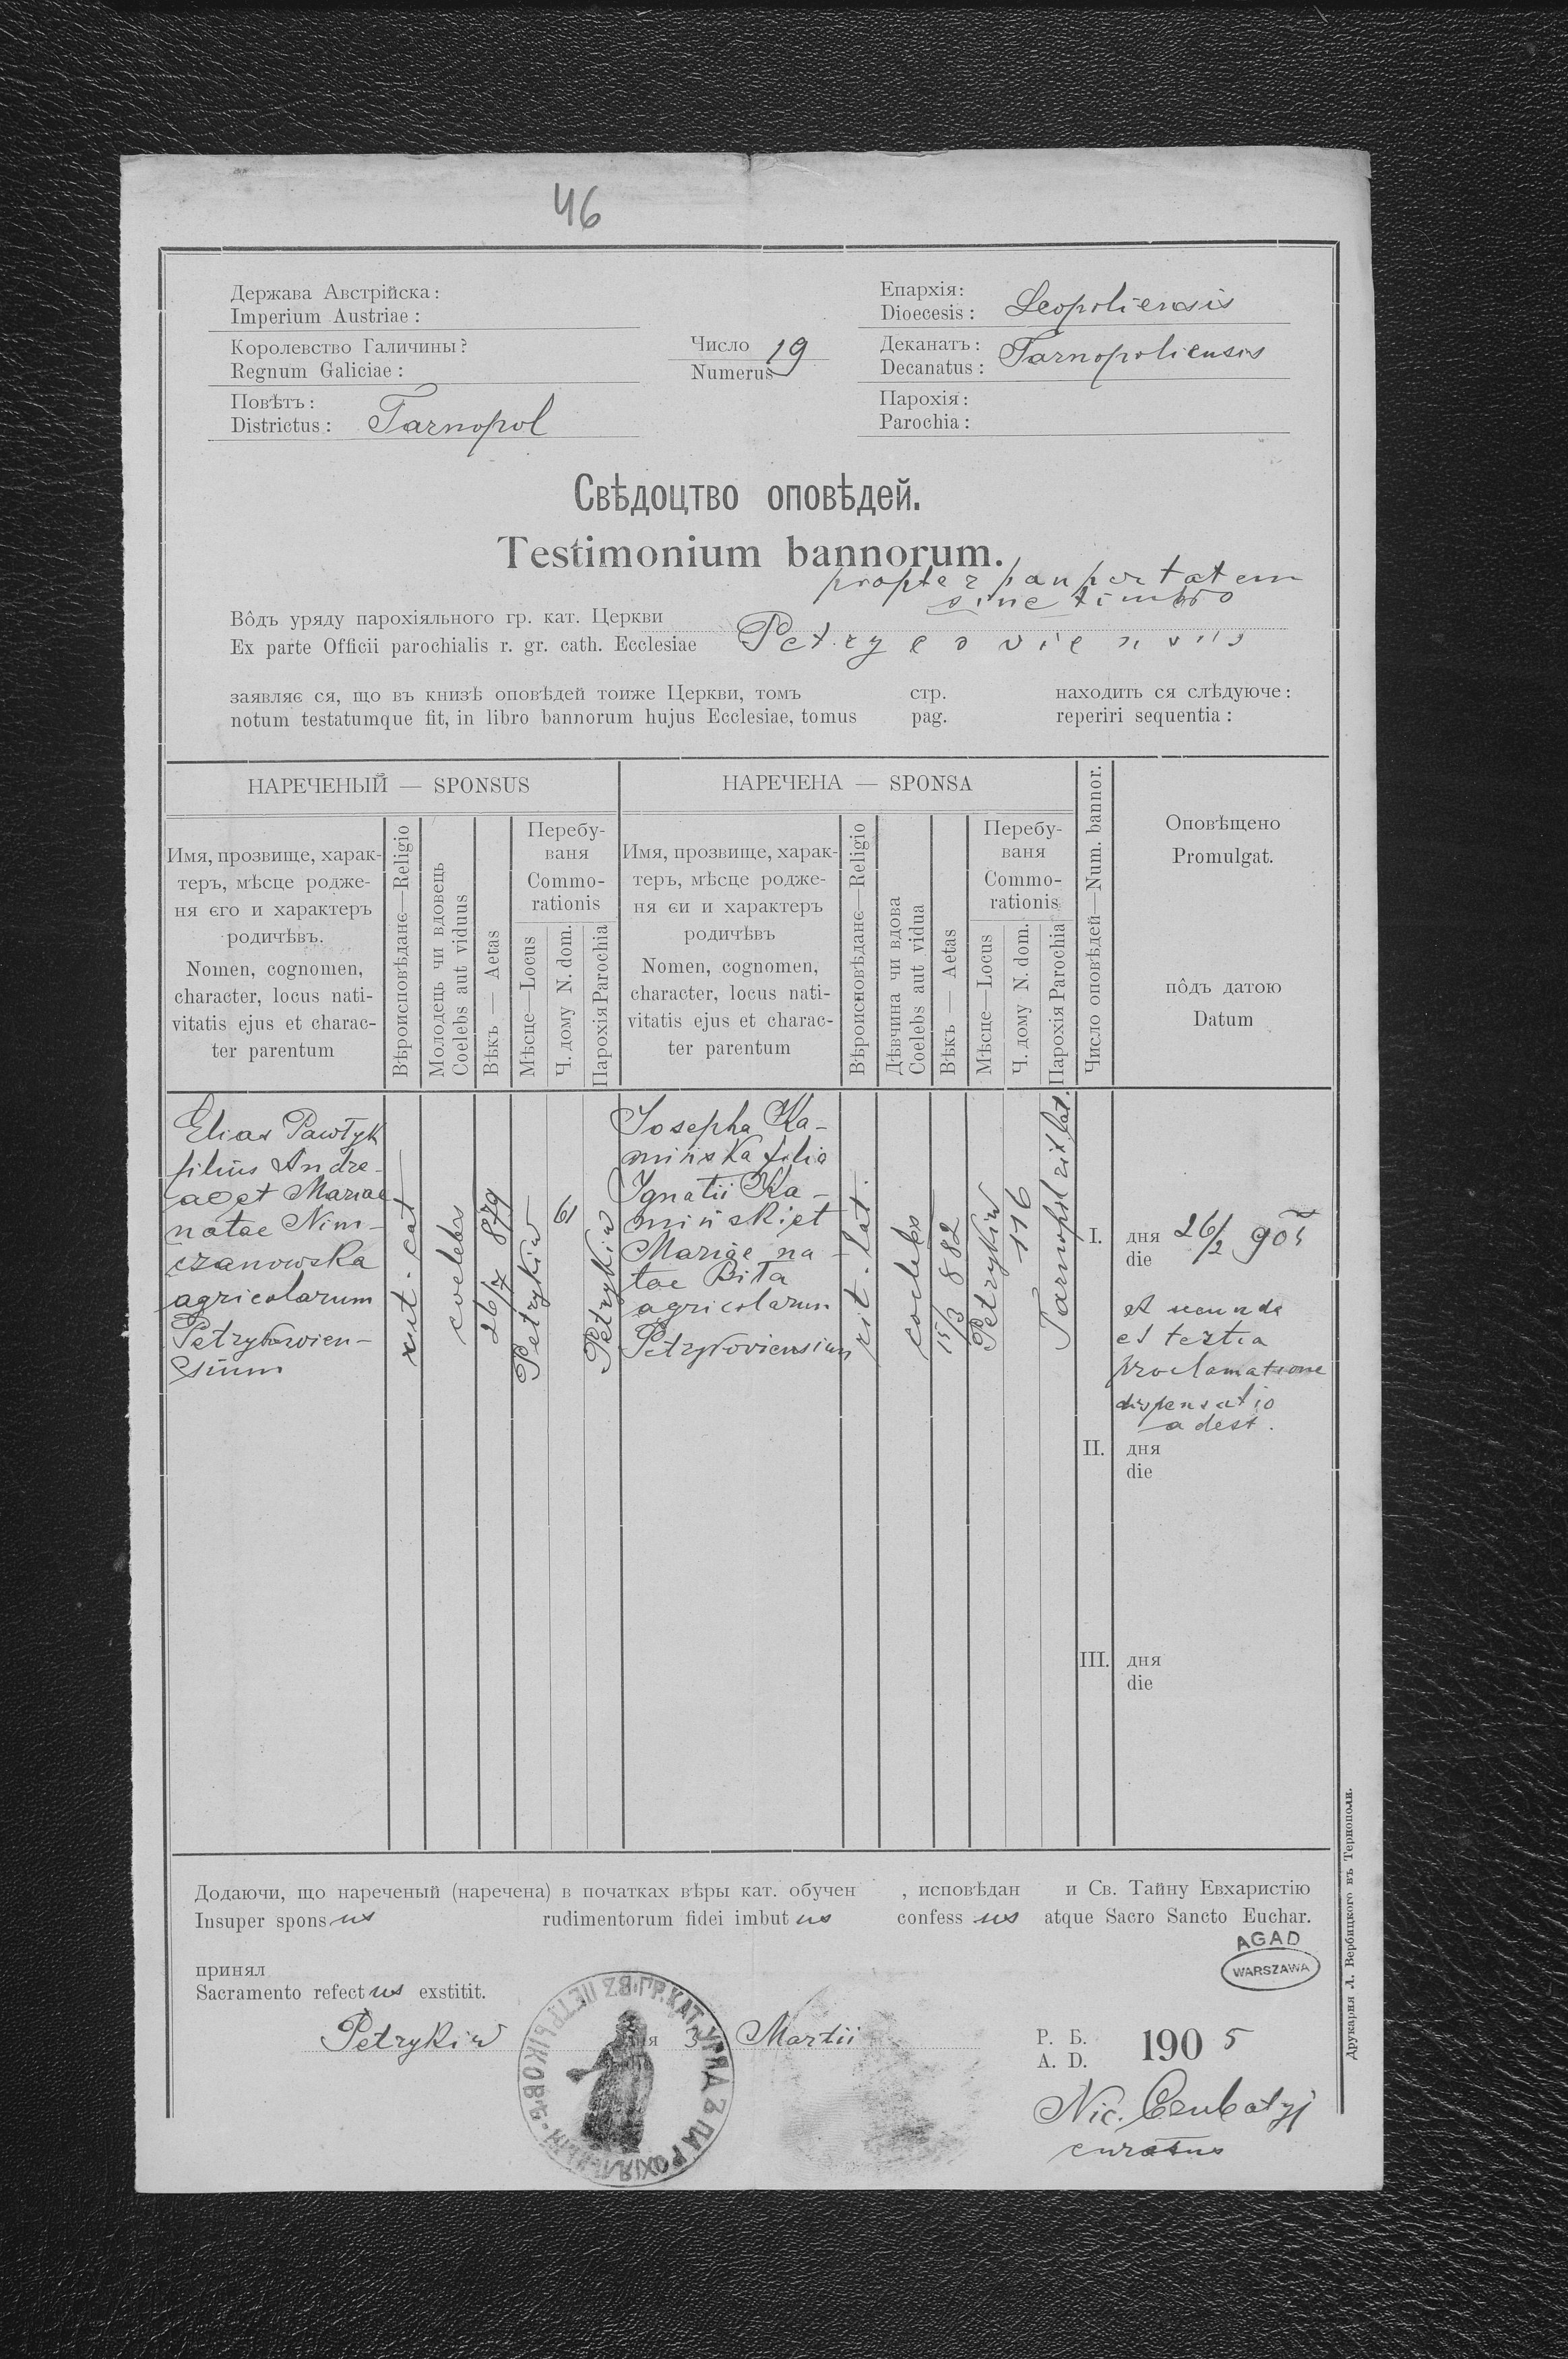 46
Держава Австрійска:
Imperium Austriae:
Королевство Галичины?
Regnum Galiciae:
Повѣтъ:
Districtus: Tarnopol
Число 19
Numerus
Епархія:
Dioecesis: Leopoliensis
Деканатъ:
Decanatus: Tarnopoliensis
Парохія:
Parochia:
Свѣдоцтво оповѣдей.
Testimonium bannorum.
propter paupertatem
sine timbro
Вôдъ уряду парохіяльного гр. кат. Церкви
Ex parte Officii parochialis r. gr. cath. Ecclesiae Petrycoviensis
заявляє ся, що въ книзѣ оповѣдей тоиже Церкви, томъ стр. находить ся слѣдуюче:
notum testatumque fit, in libro bannorum hujus Ecclesiae, tomus pag. reperiri sequentia:
НАРЕЧЕНЫЙ — SPONSUS
Имя, прозвище, харак-
теръ, мѣсце родже-
ня єго и характеръ
родичѣвъ.
Nomen, cognomen,
character, locus nati-
vitatis ejus et charac-
ter parentum
Вѣроисповѣданє—Religio
Молодець чи вдовець
Coelebs aut viduus
Вѣкъ — Aetas
Перебу-
ваня
Commo-
rationis
Мѣсце—Locus
Ч. дому N. dom.
Парохія Parochia
НАРЕЧЕНА — SPONSA
Имя, прозвище, харак-
теръ, мѣсце родже-
ня єи и характеръ
родичѣвъ
Nomen, cognomen,
character, locus nati-
vitatis ejus et charac-
ter parentum
Вѣроисновѣданє—Religio
Дѣвчина чи вдова
Coelebs aut vidua
Вѣкъ — Aetas
Перебу-
ваня
Commo-
rationis
Мѣсце—Locus
Ч. дому N. dom.
Парохія Parochia
Число оповѣдей—Num. bannor.
Оповѣщено
Promulgat.
пôдъ датою
Datum
Elias Pawłyk
filius Andre-
ae et Mariae
natae Nim-
czanowska
agricolarum
Petrykowien-
sium
rut. cat
coelebs
26/7 879
Petrykiw
61
Petrykiw
Josepha Ka-
mińska filia
Ignatii Ka-
miński et
Mariae na-
tae Biła
agricolarum
Petrykoviensium
rit. lat.
coelebs
15/3 882
Petrykiw
116
Tarnopol rit. lat.
I. дня 26/2 905
die
A secunda
et tertia
proclamatione
dispensatio
adest.
II. дня
die
III. дня
die
Додаючи, що нареченый (наречена) в початках вѣры кат. обучен , исповѣдан и Св. Тайну Евхаристію
Insuper sponsus rudimentorum fidei imbutus confessus atque Sacro Sancto Euchar.
принял
Sacramento refectus exstitit.
AGAD
WARSZAWA
Petrykiw дня 3 Martii
Р. Б.
A. D. 1905
Nic. Czubatyj
curatus
Друкарня Л. Вербицкого въ Тернополи.